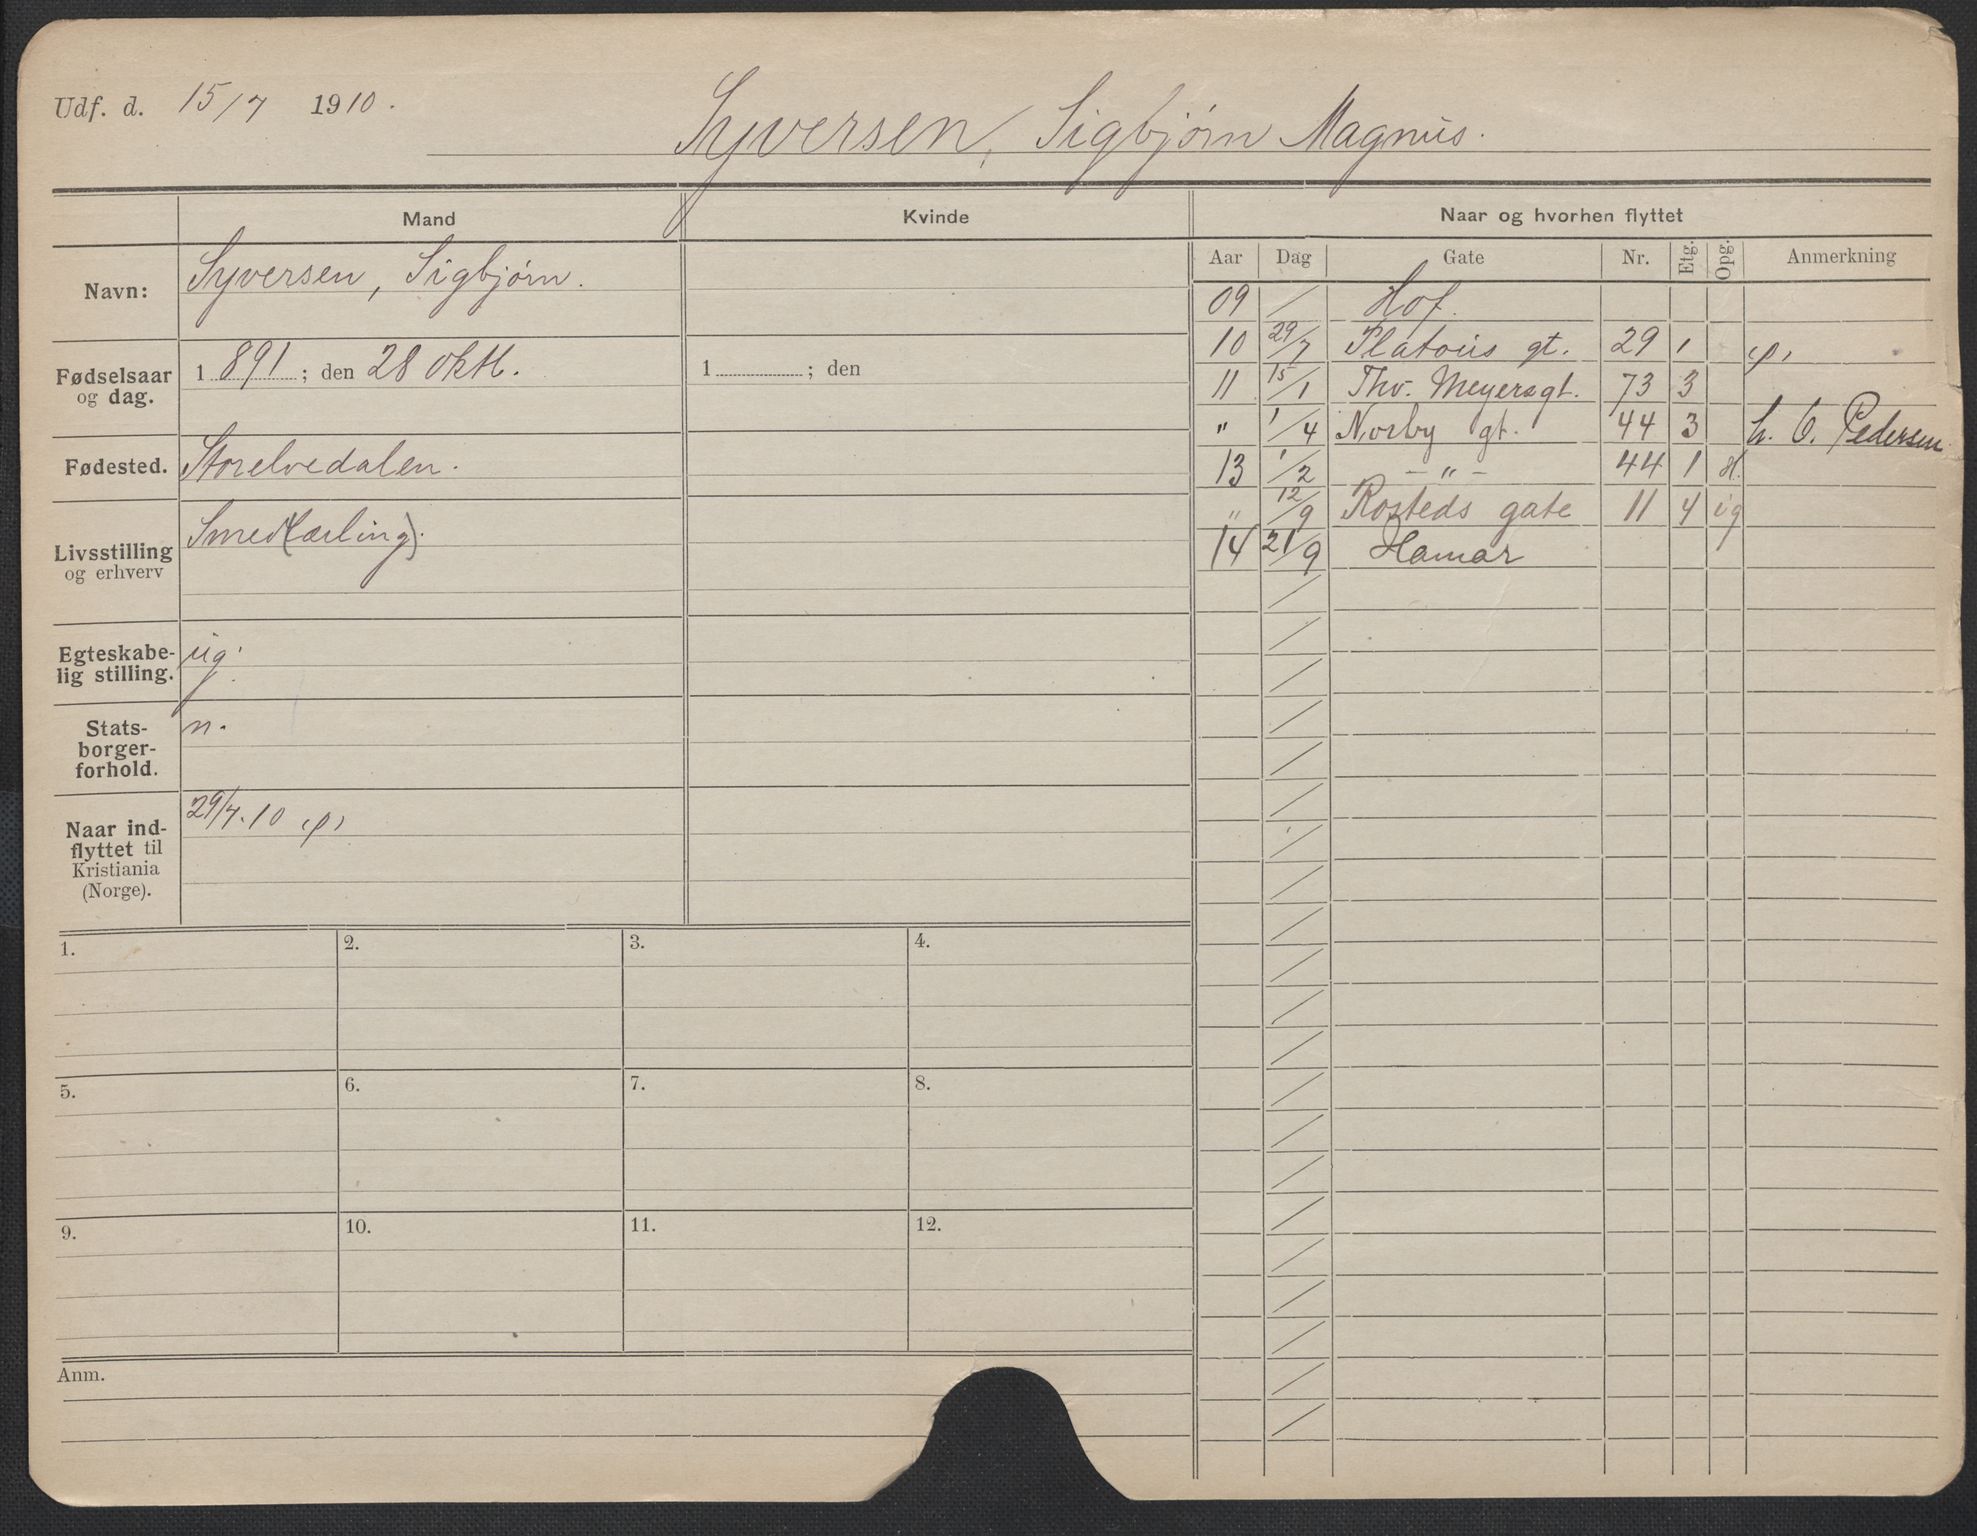 Udf. d. 15/7 1910.
Syversen, Sigbjørn Magnus.
Mand
Kvinde
Naar og hvorhen flyttet
Aar Dag Gate Nr. Etg. Opg. Anmerkning
Navn: Syversen, Sigbjørn.
Fødselsaar og dag. 1891; den 28 oktb. 1 ; den
Fødested. Storelvedalen.
Livsstilling og erhverv Smed(lærling).
Egteskabelig stilling. ug.
Statsborgerforhold. n.
Naar indflyttet til Kristiania (Norge). 29/7.10 p,
09 / Hof.
10 29/7 Platous gt. 29 1 p,
11 15/1 Thv. Meyersgt. 73 3
" 1/4 Norby gt. 44 3 h. O. Pedersen
13 1/2 – " – 44 1 H.
" 12/9 Rosteds gate 11 4 ig
14 21/9 Hamar
1. 2. 3. 4.
5. 6. 7. 8.
9. 10. 11. 12.
Anm.